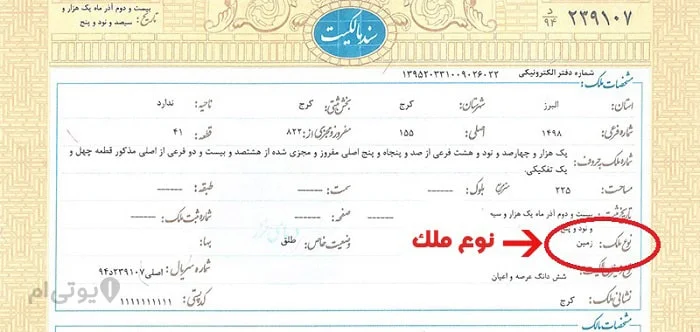 ۲۳۹۱۰۷
د
۹۴
سند مالکیت
تاریخ: بیست و دوم آذر ماه یک هزار و
سیصد و نود و پنج
شماره دفتر الکترونیکی: ۱۳۹۵۲۰۳۳۱۰۰۹۰۲۶۰۲۲
مشخصات ملک:
استان: البرز شهرستان: کرج بخش ثبتی: کرج ناحیه: ندارد
شماره فرعی: ۱۴۹۸ اصلی: ۱۵۵ مفروز و مجزی از: ۸۲۲ قطعه: ۴۱
شماره ملک بحروف: یک هزار و چهارصد و نود و هشت فرعی از صد و پنجاه و پنج اصلی مفروز و مجزی شده از هشتصد و بیست و دو فرعی از اصلی مذکور قطعه چهل و
یک تفکیکی.
مساحت: ۲۲۵ مترمربع بلوک: ------ سمت: ------ طبقه: ------
تاریخ ثبت: بیست و دوم آذر ماه یک هزار و سیصد صفحه: ------ شماره ثبت ملک: ------
و نود و پنج
نوع ملک: زمین وضعیت خاص: طلق بها:
نوع ملک
شش دانگ عرصه و اعیان شماره سریال: اصلی/۲۳۹۱۰۷د۹۴
نشانی ملک: کرج کدپستی: ۱۱۱۱۱۱۱۱۱۱
یوتی ام
مشخصات مالک: